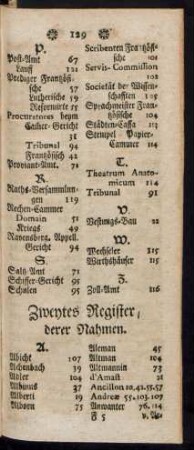 129
P.
Post-Amt 67
Lauff 12
Prediger Frantzösi-
sche 57
Lutherische 59
Reformirte 55
Procuratores beym
Cam̃er-Gericht
31
Tribunal 94
Frantzösisch 42
Proviant-Amt. 71
R.
Raths-Versammlun-
gen 110
Rechen-Cammer
Domain 51
Kriegs 49
Ravensbürg. Appell.
Gericht 94
S.
Saltz-Amt 71
Schiffer-Gericht 95
Schulen 95
Scribenten Frantzösi-
sche 101
Servis-Commission
102
Societät der Wissen-
schafften 105
Sprachmeister Fran-
tzösische 101
Städten-Cassa 113
Stempel Papier-
Cammer 114
T.
Theatrum Anato-
micum 114
Tribunal 91
V.
Vestungs-Bau 22
W.
Wechseler 115
Wirthshäuser 115
Z.
Zoll-Amt 116
Zweytes Register,
derer Nahmen.
A.
Abicht 107
Achenbach 39
Adler 104
Albinus 37
Alberti 19
Alborn 75
Aleman 45
Altman 104
Altmannin 73
d'Amait 21
Ancillon 10.42.55.57
Andreæ 55.103.107
Anwanter 76.114
F 5 v. A-